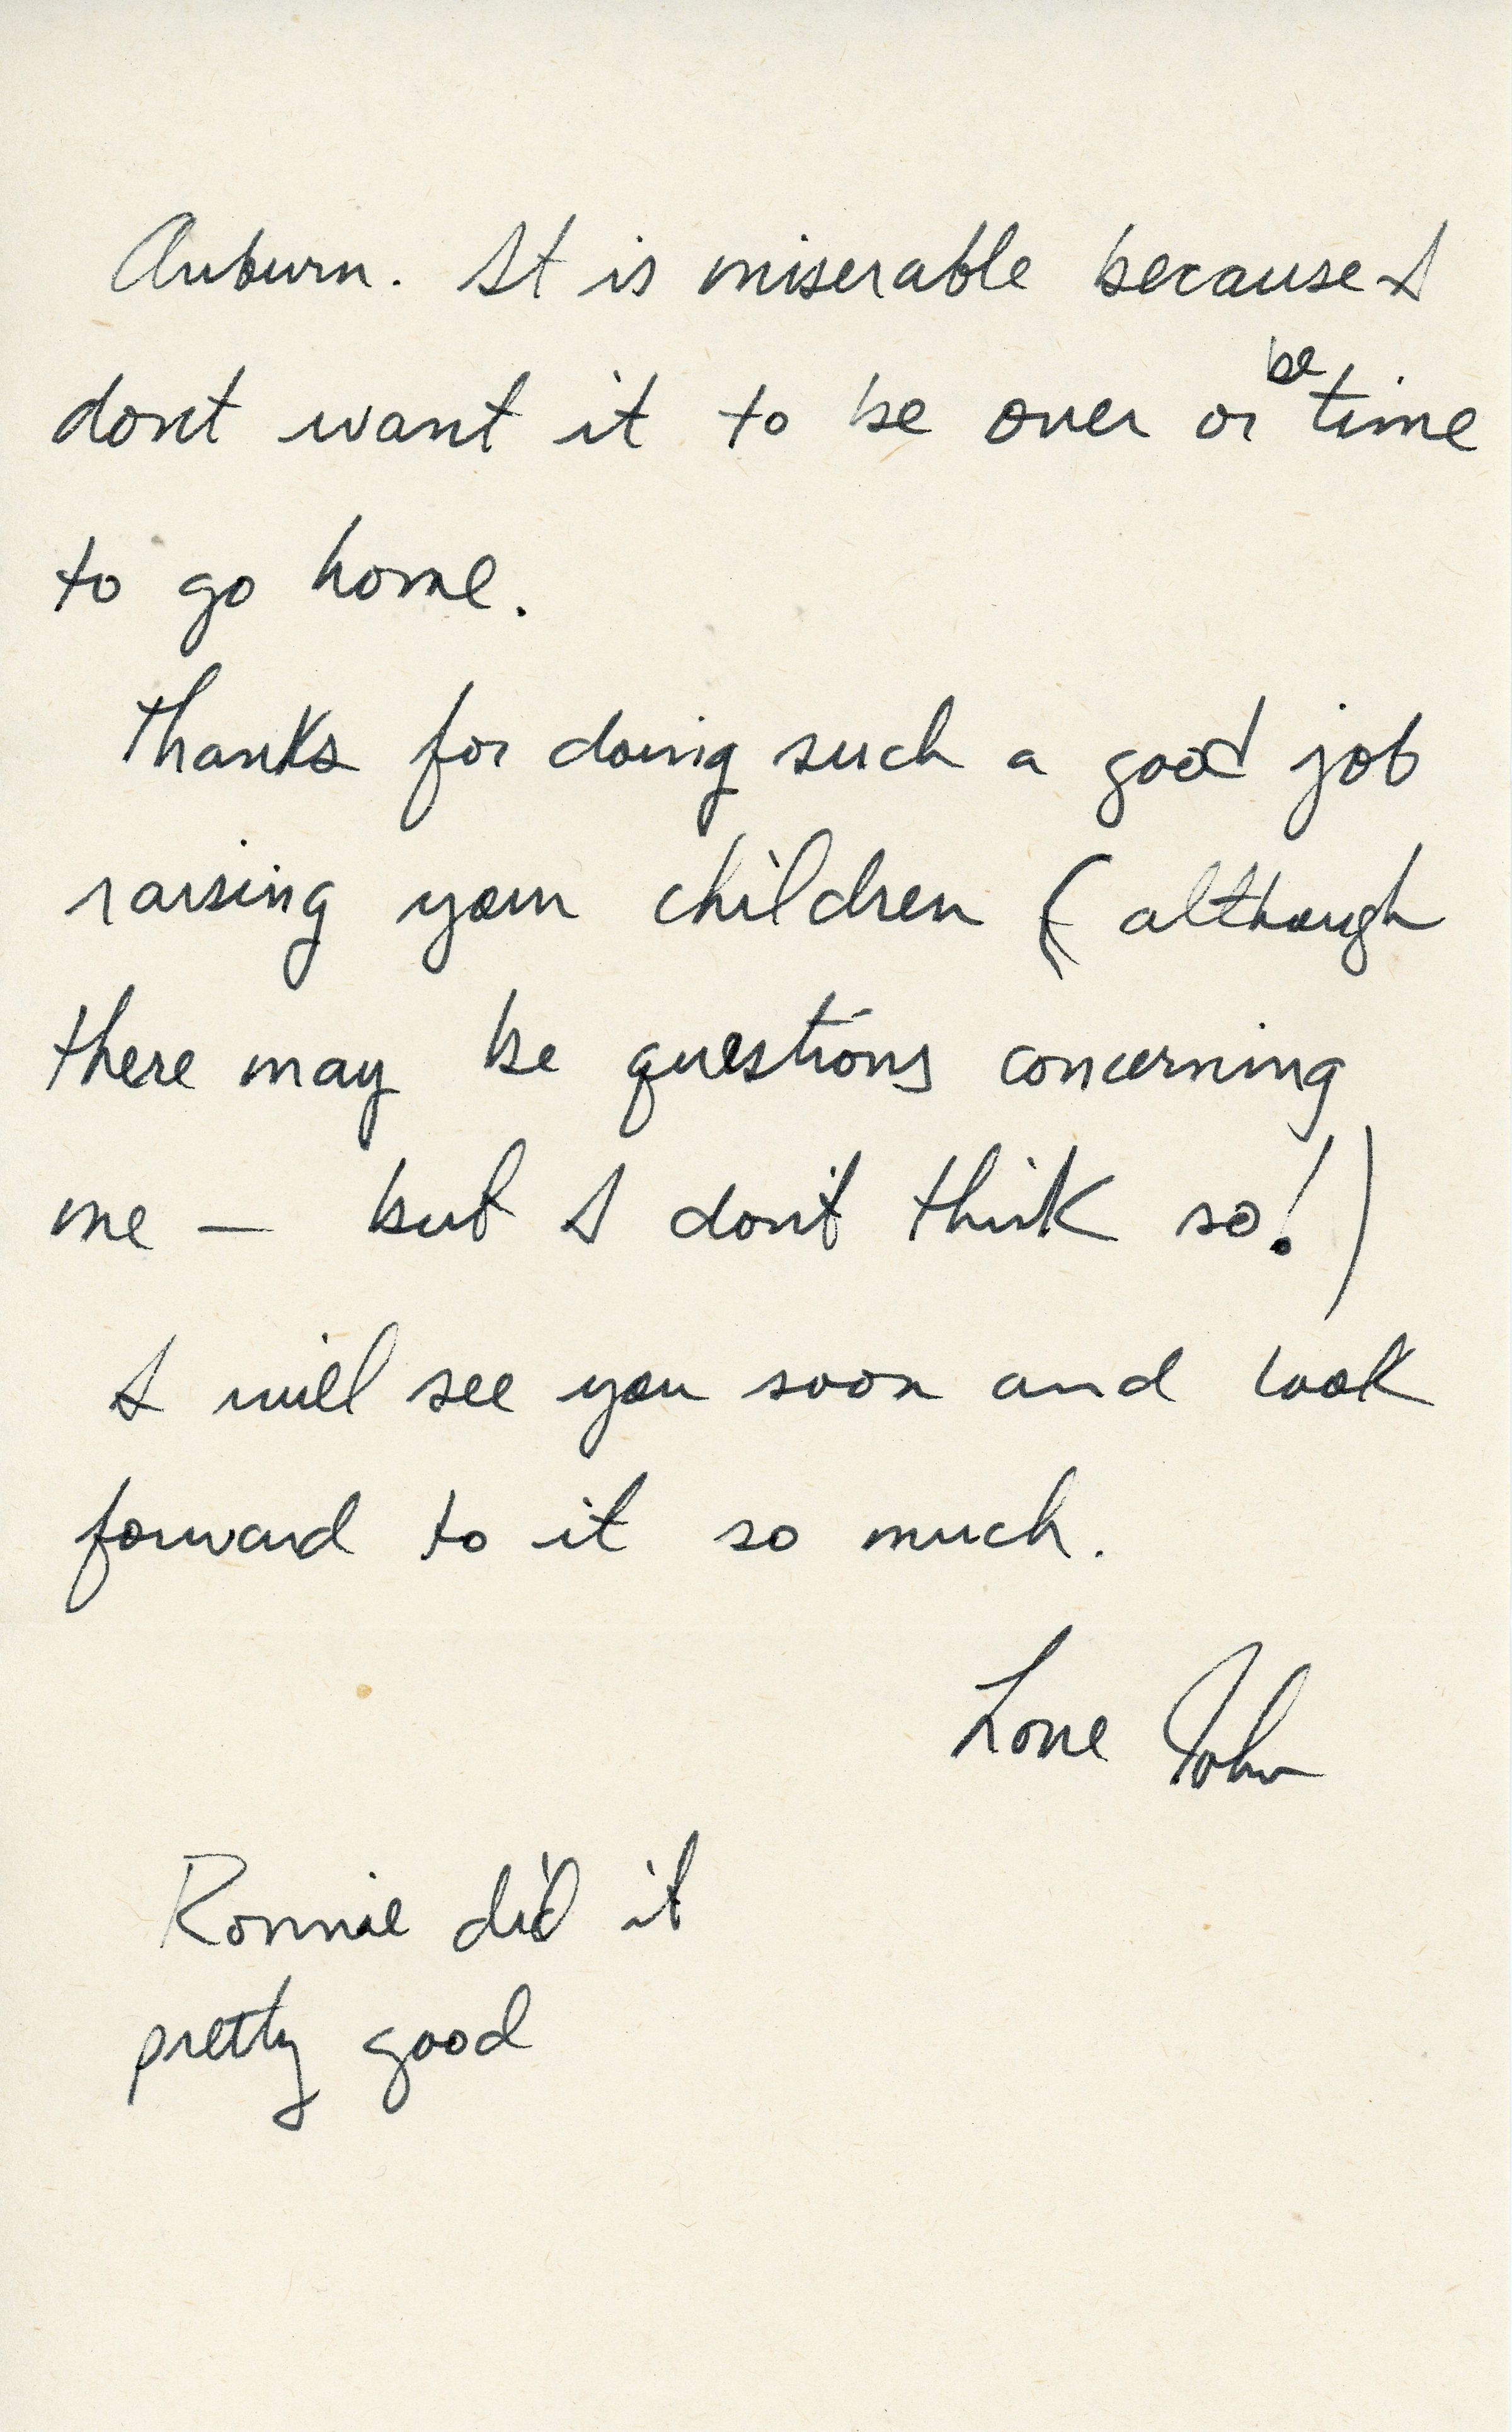 Auburn. It is miserable because I
dont want it to be over or be time
to go home.
Thanks for doing such a good job
raising your children (although
there may be questions concerning
me – but I don't think so!)
I will see you soon and look
forward to it so much.
Love John
Ronnie did it
pretty good